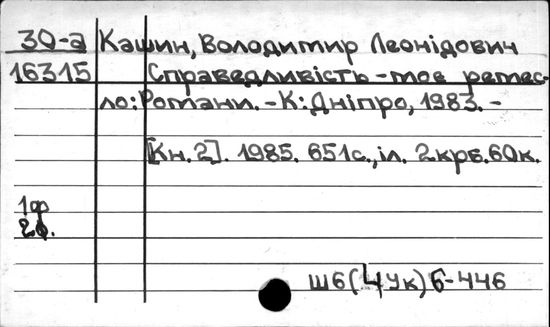 30-а Кашин, Володимир Леонідович
16315 Справедливість - моє ремес-
ло: Романи. - К: Дніпро, 1983. -
[Кн. 2]. 1985. 651с., іл. 2крб. 60к.
1ф
2ф.
Ш6(4Ук)6-446